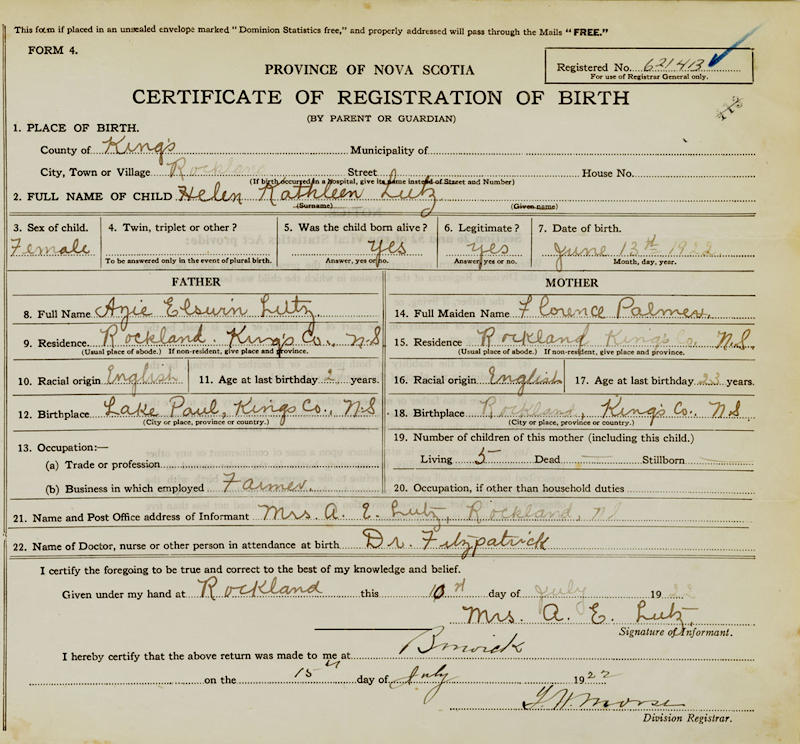 This form if placed in an unsealed envelope marked "Dominion Statistics free," and properly addressed will pass through the Mails "FREE."
FORM 4.
Registered No. 621413
For use of Registrar General only.
PROVINCE OF NOVA SCOTIA
CERTIFICATE OF REGISTRATION OF BIRTH
(BY PARENT OR GUARDIAN)
1. PLACE OF BIRTH.
County of King's Municipality of
City, Town or Village Rockland Street House No.
(If birth occurred in a hospital, give its name instead of Street and Number)
2. FULL NAME OF CHILD Helen Kathleen Lutz
(Surname) (Given name)
3. Sex of child. 4. Twin, triplet or other? 5. Was the child born alive? 6. Legitimate? 7. Date of birth.
Female yes yes June 13th 1922
To be answered only in the event of plural birth. Answer, yes or no. Answer, yes or no. Month, day, year.
FATHER
8. Full Name Azie Elswin Lutz
9. Residence Rockland. King's Co., N.S
(Usual place of abode.) If non-resident, give place and province.
10. Racial origin English 11. Age at last birthday years.
12. Birthplace Lake Paul, King's Co., N.S
(City or place, province or country.)
13. Occupation:—
(a) Trade or profession
(b) Business in which employed Farmer.
MOTHER
14. Full Maiden Name Florence Palmer.
15. Residence Rockland King's Co. N.S.
(Usual place of abode.) If non-resident, give place and province.
16. Racial origin English 17. Age at last birthday 23 years.
18. Birthplace Rockland, King's Co., N.S
(City or place, province or country.)
19. Number of children of this mother (including this child.)
Living 5 Dead — Stillborn —
20. Occupation, if other than household duties
21. Name and Post Office address of Informant Mrs. A. E. Lutz, Rockland, NS
22. Name of Doctor, nurse or other person in attendance at birth Dr. Fitzpatrick
I certify the foregoing to be true and correct to the best of my knowledge and belief.
Given under my hand at Rockland this 10th day of July 1922
Mrs. A. E. Lutz.
Signature of Informant.
I hereby certify that the above return was made to me at Berwick
on the 15th day of July 1922
Morse
Division Registrar.